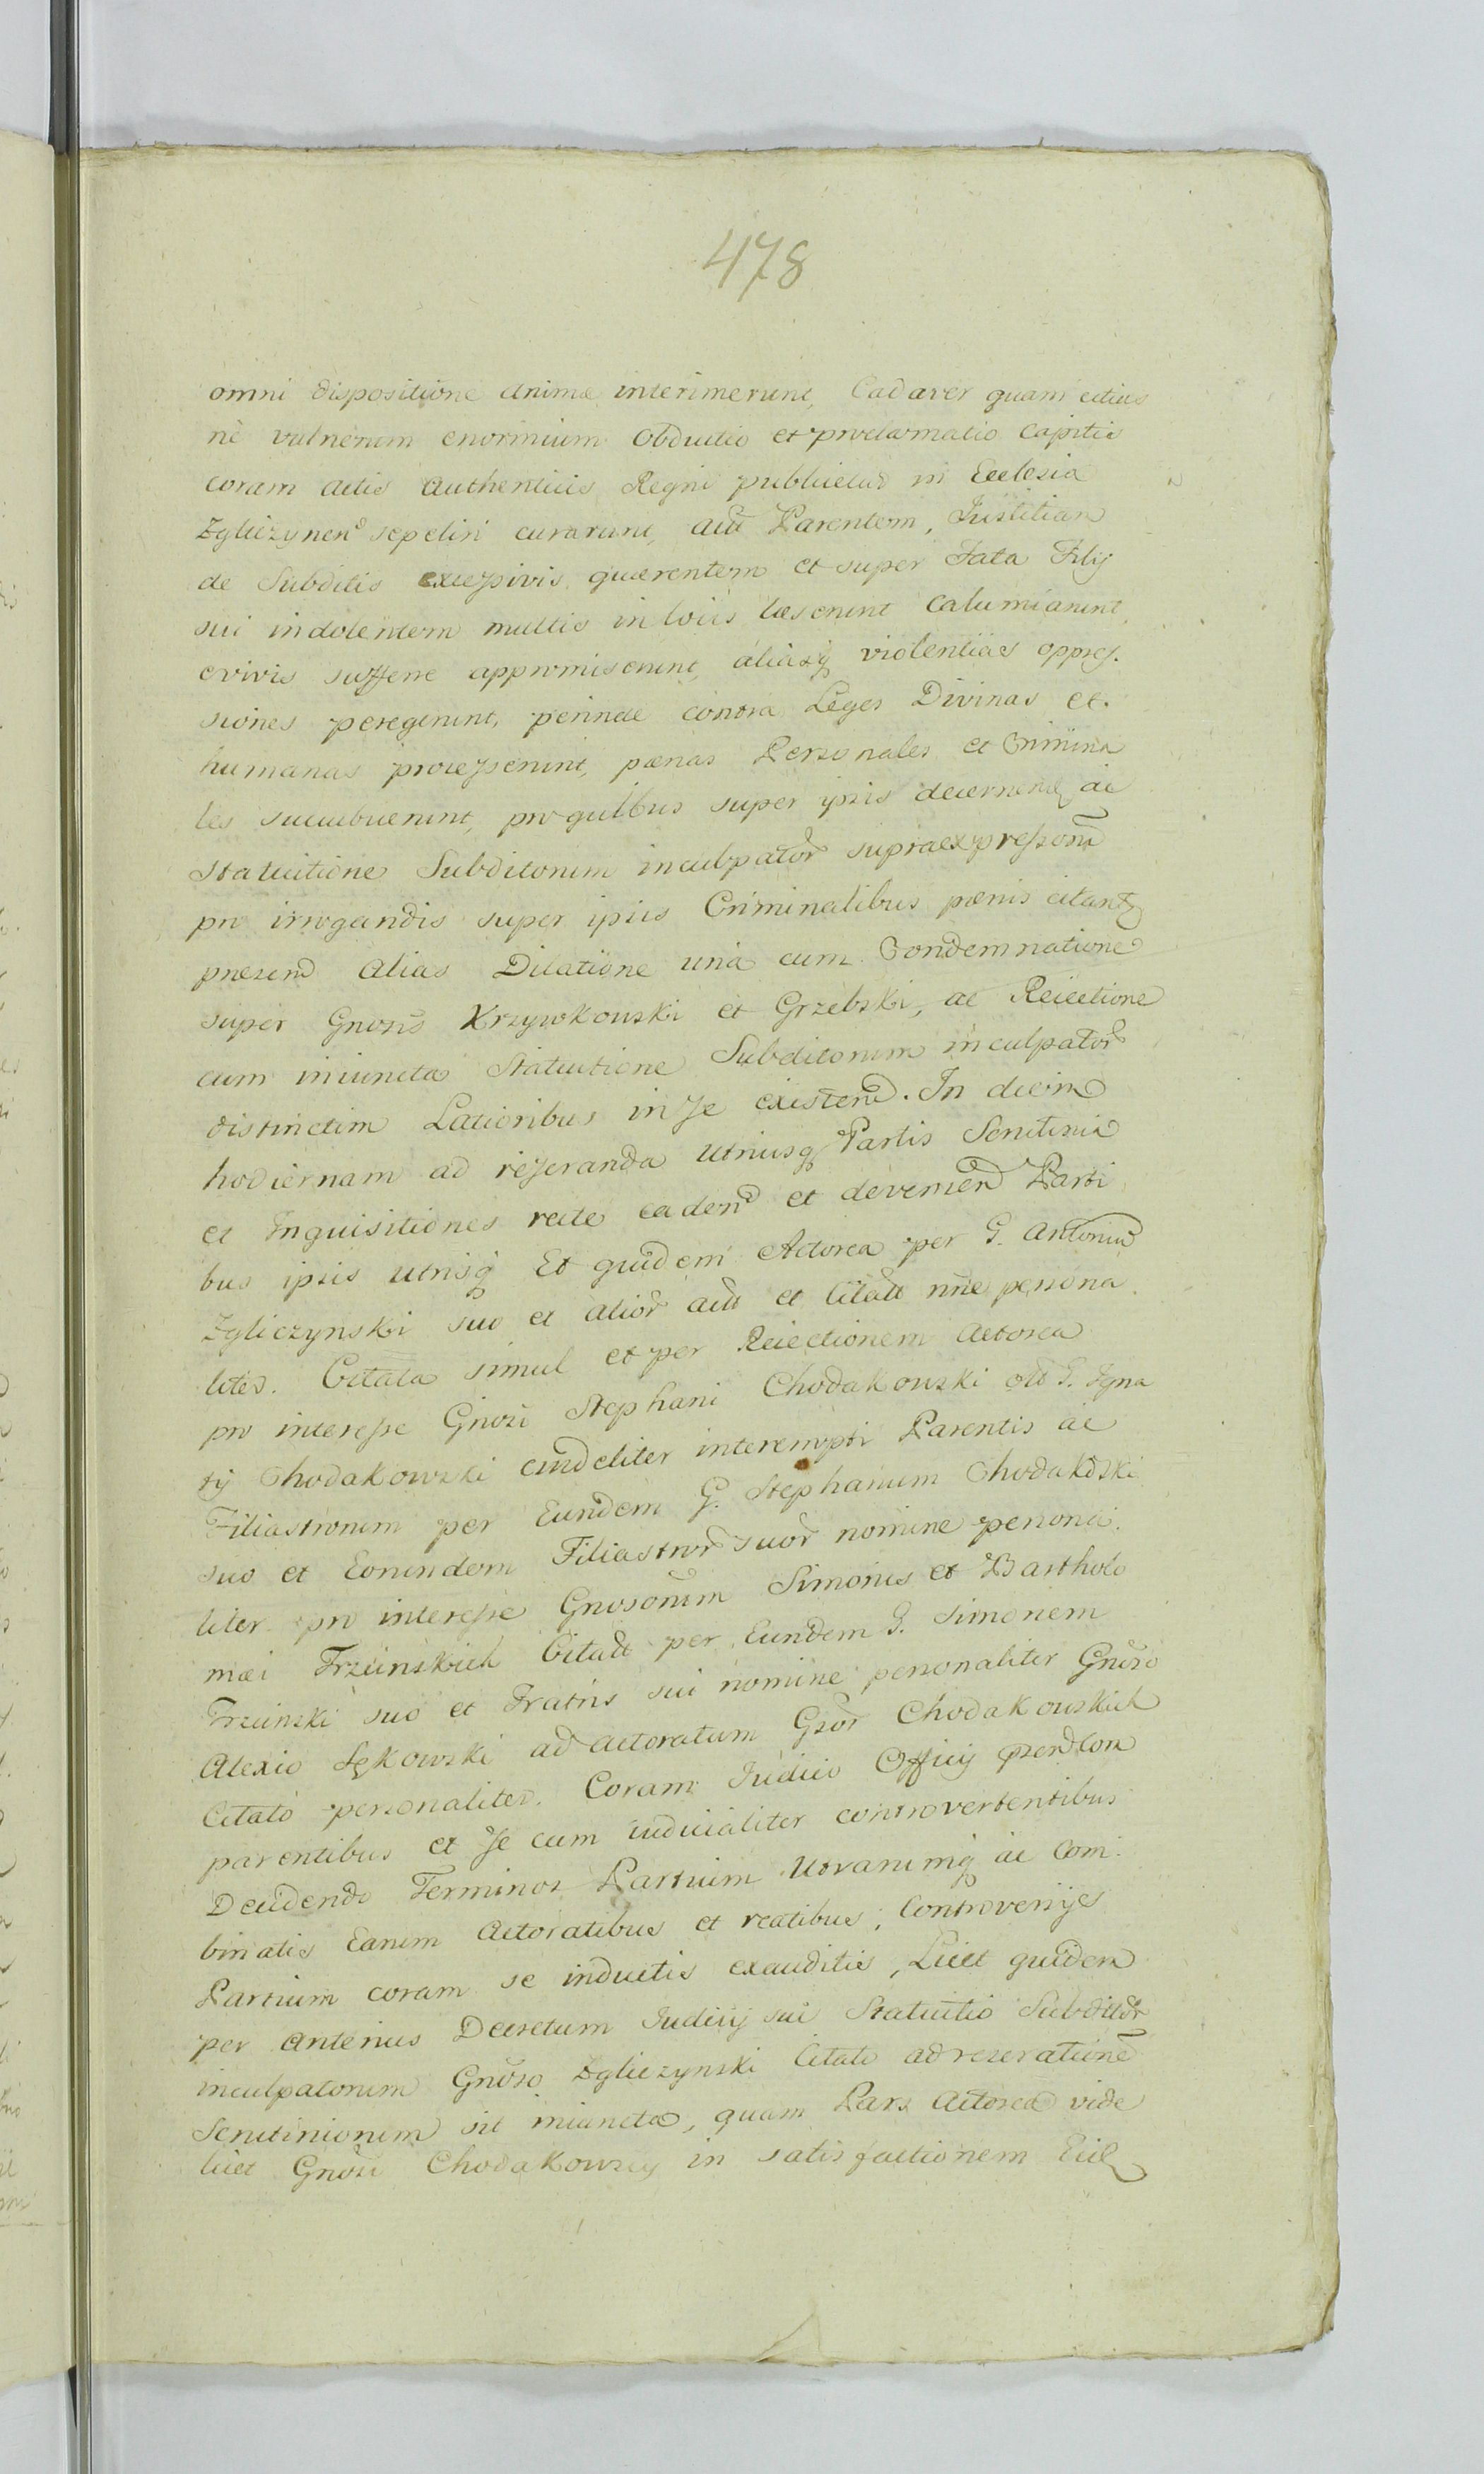 478
omni dispositione animæ interimerunt, Cadaver quam citius
nè vulnerum enormium obductio et proclamatio capitis
coram actis Authenticis Regni publicetur in Ecclesia
Zgliczynenſ sepeliri curarunt, Parentem, Justitiam
de Subditis excessivis quærentem et super Fata Filij
sui indolentem multis in locis læserunt calumiarunt,
e vivis sufferre appromiserunt, aliasq violentias oppres.
siones peregerunt, perinde contra Leges Divinas et
humanas processerunt, pœnas Personales et Crimina
les succubuerunt, pro quibus super ipsis decernend ac
Statuitione Subditorum inculpator supraexpressorũ
pro irrogandis super ipsis Criminalibus pœnis citant
præsend alias Dilatione unà cum Condemnatione
super Gnosis Krzywkowski et Grzebski, ac Reiectione
cum iniuncta Statuitione Subditorum inculpator
distinctim Latioribus in se existend. In diem
hodiernam ad reseranda utriusq Partis Scrutinia
et Inquisitiones recte cadend et devenien Parti
bus ipsis utrisq Et quidem Actorea per G. Antonium
Zgliczynski suo et alior et Citatt nñe persona
liter. Citata simul et per Reiectionem Actorea
pro interesse Gnosi Stephani Chodakowski G. Igna
tij Chodakowski crudeliter interempti Parentis ac
Filiastrorum per Eundem G. Stephanum Chodakoski
suo et Eorundem Filiastror suor nomine persona.
liter pro interesse Gnosorum Simonis et Bartholo
mæi Trzcinskich Citatt per Eundem G. Simonem
Trzcinski suo et Fratris sui nomine personaliter Gnoso
Alexio Sękowski ad actoratum Gsor Chodakowskich
Citato personaliter. Coram Iudicio Officij com
parentibus et se cum iudicialiter controvertentibus
Decidendo Terminos Partium utrarumq ac com.
binatis Earum Actoratibus et reatibus, Controversijs
Partium coram se inductis exauditis, Licet quidem
per anterius Decretum Iudicij sui Statuitio Subditor
inculpatorum Gnoso Zgliczynski Citato ad reserationẽ
Scrutiniorum sit iniuncta, quam Pars Actorea vide
licet Gnosi Chodakowscy in satisfactionem